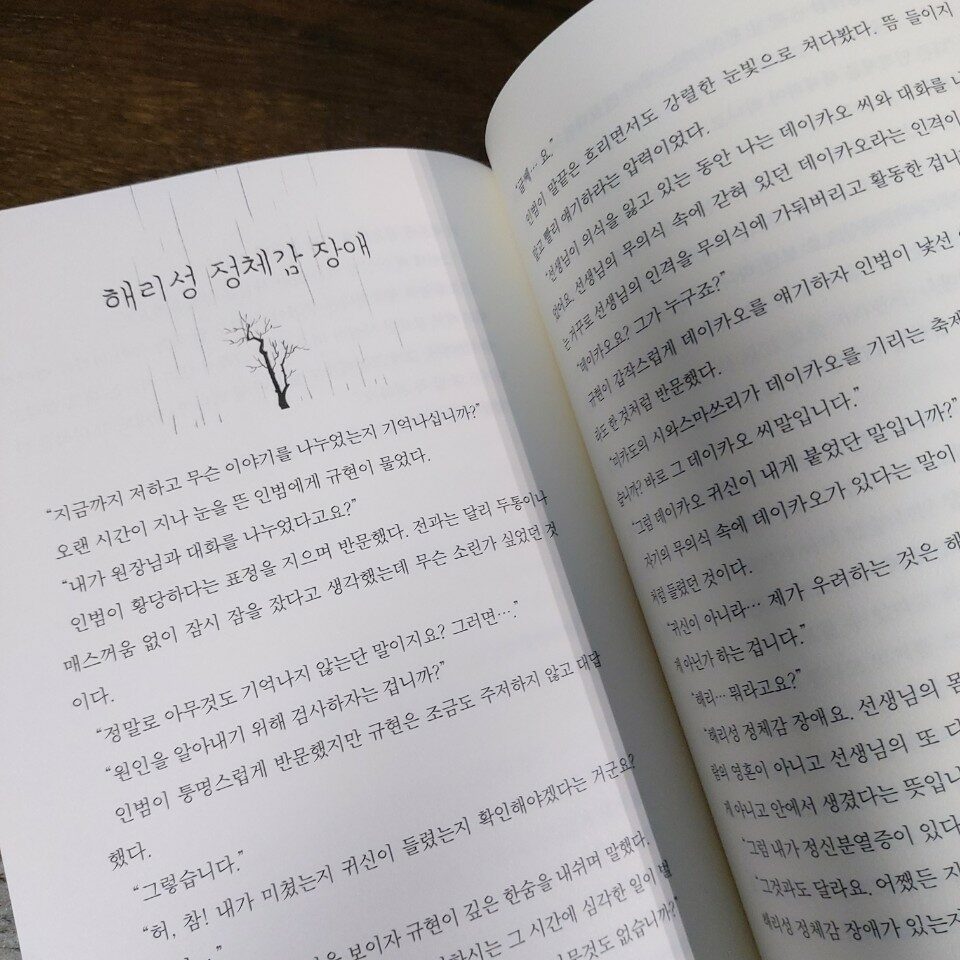 해리성 정체감 장애
“지금까지 저하고 무슨 이야기를 나누었는지 기억나십니까?”
오랜 시간이 지나 눈을 뜬 인범에게 규현이 물었다.
“내가 원장님과 대화를 나누었다고요?”
인범이 황당하다는 표정을 지으며 반문했다. 전과는 달리 두통이나
매스꺼움 없이 잠시 잠을 잤다고 생각했는데 무슨 소린가 싶었던 것
이다.
“정말로 아무것도 기억나지 않는단 말이지요? 그러면….”
“원인을 알아내기 위해 검사하자는 겁니까?”
인범이 퉁명스럽게 반문했지만 규현은 조금도 주저하지 않고 대답
했다.
“그렇습니다.”
“허, 참! 내가 미쳤는지 귀신이 들렸는지 확인해야겠다는 거군요?
보이자 규현이 깊은 한숨을 내쉬며 말했다.
그 시간에 심각한 일이 벌
없습니까?”
인범이 말끝은 흐리면서도 강렬한 눈빛으로 쳐다봤다. 뜸 들이지
말고 빨리 얘기하라는 압력이었다.
“선생님이 의식을 잃고 있는 동안 나는 데이카오 씨와 대화를 나
었어요. 선생님의 무의식 속에 갇혀 있던 데이카오라는 인격이
는 거꾸로 선생님의 인격을 무의식에 가둬버리고 활동한 겁니
“데이카오요? 그가 누구죠?”
규현이 갑작스럽게 데이카오를 얘기하자 인범이 낯선
라도 한 것처럼 반문했다.
“미카도의 시와스마쓰리가 데이카오를 기리는 축제
습니까? 바로 그 데이카오 씨 말입니다.”
“그럼 데이카오 귀신이 내게 붙었단 말입니까?”
자기의 무의식 속에 데이카오가 있다는 말이
처럼 들렸던 것이다.
“귀신이 아니라… 제가 우려하는 것은 해
게 아닌가 하는 겁니다.”
“해리… 뭐라고요?”
“해리성 정체감 장애요. 선생님의 몸
람의 영혼이 아니고 선생님의 또 다
게 아니고 안에서 생겼다는 뜻입니
“그럼 내가 정신분열증이 있다
“그것과도 달라요. 어쨌든 지
해리성 정체감 장애가 있는지